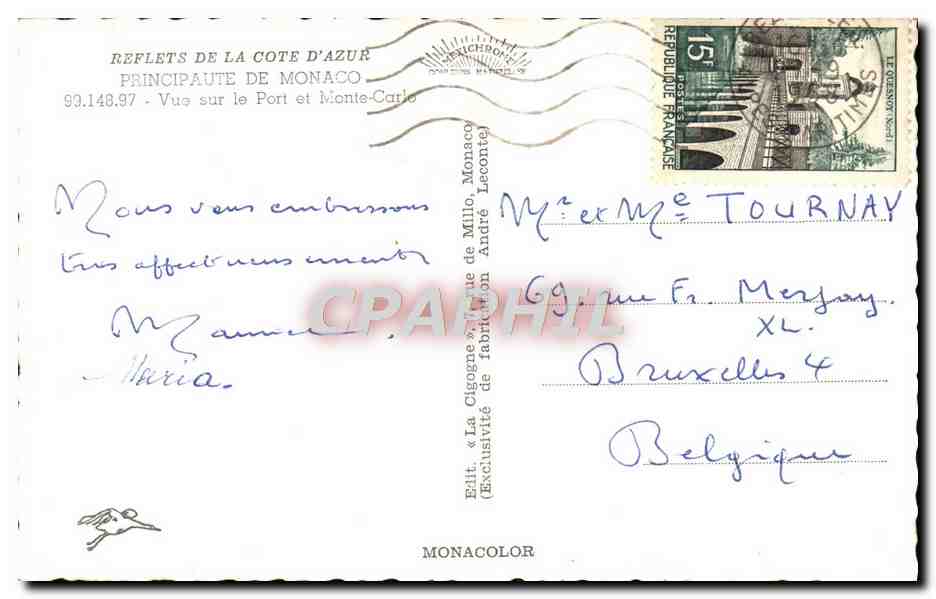 REFLETS DE LA COTE D'AZUR
PRINCIPAUTE DE MONACO
99.148.97 - Vue sur le Port et Monte-Carlo
MEXICHROME
15F
POSTES
REPUBLIQUE FRANÇAISE
LE QUESNOY (Nord)
Nous vous embrassons
très affectueusement
Maurice.
Maria.
Edit. « La Cigogne », 7, rue de Millo, Monaco
(Exclusivité de fabrication André Leconte)
Mr et Me TOURNAY
69, rue Fr. Merjay.
XL.
Bruxelles 4
Belgique
CPAPHIL
MONACOLOR